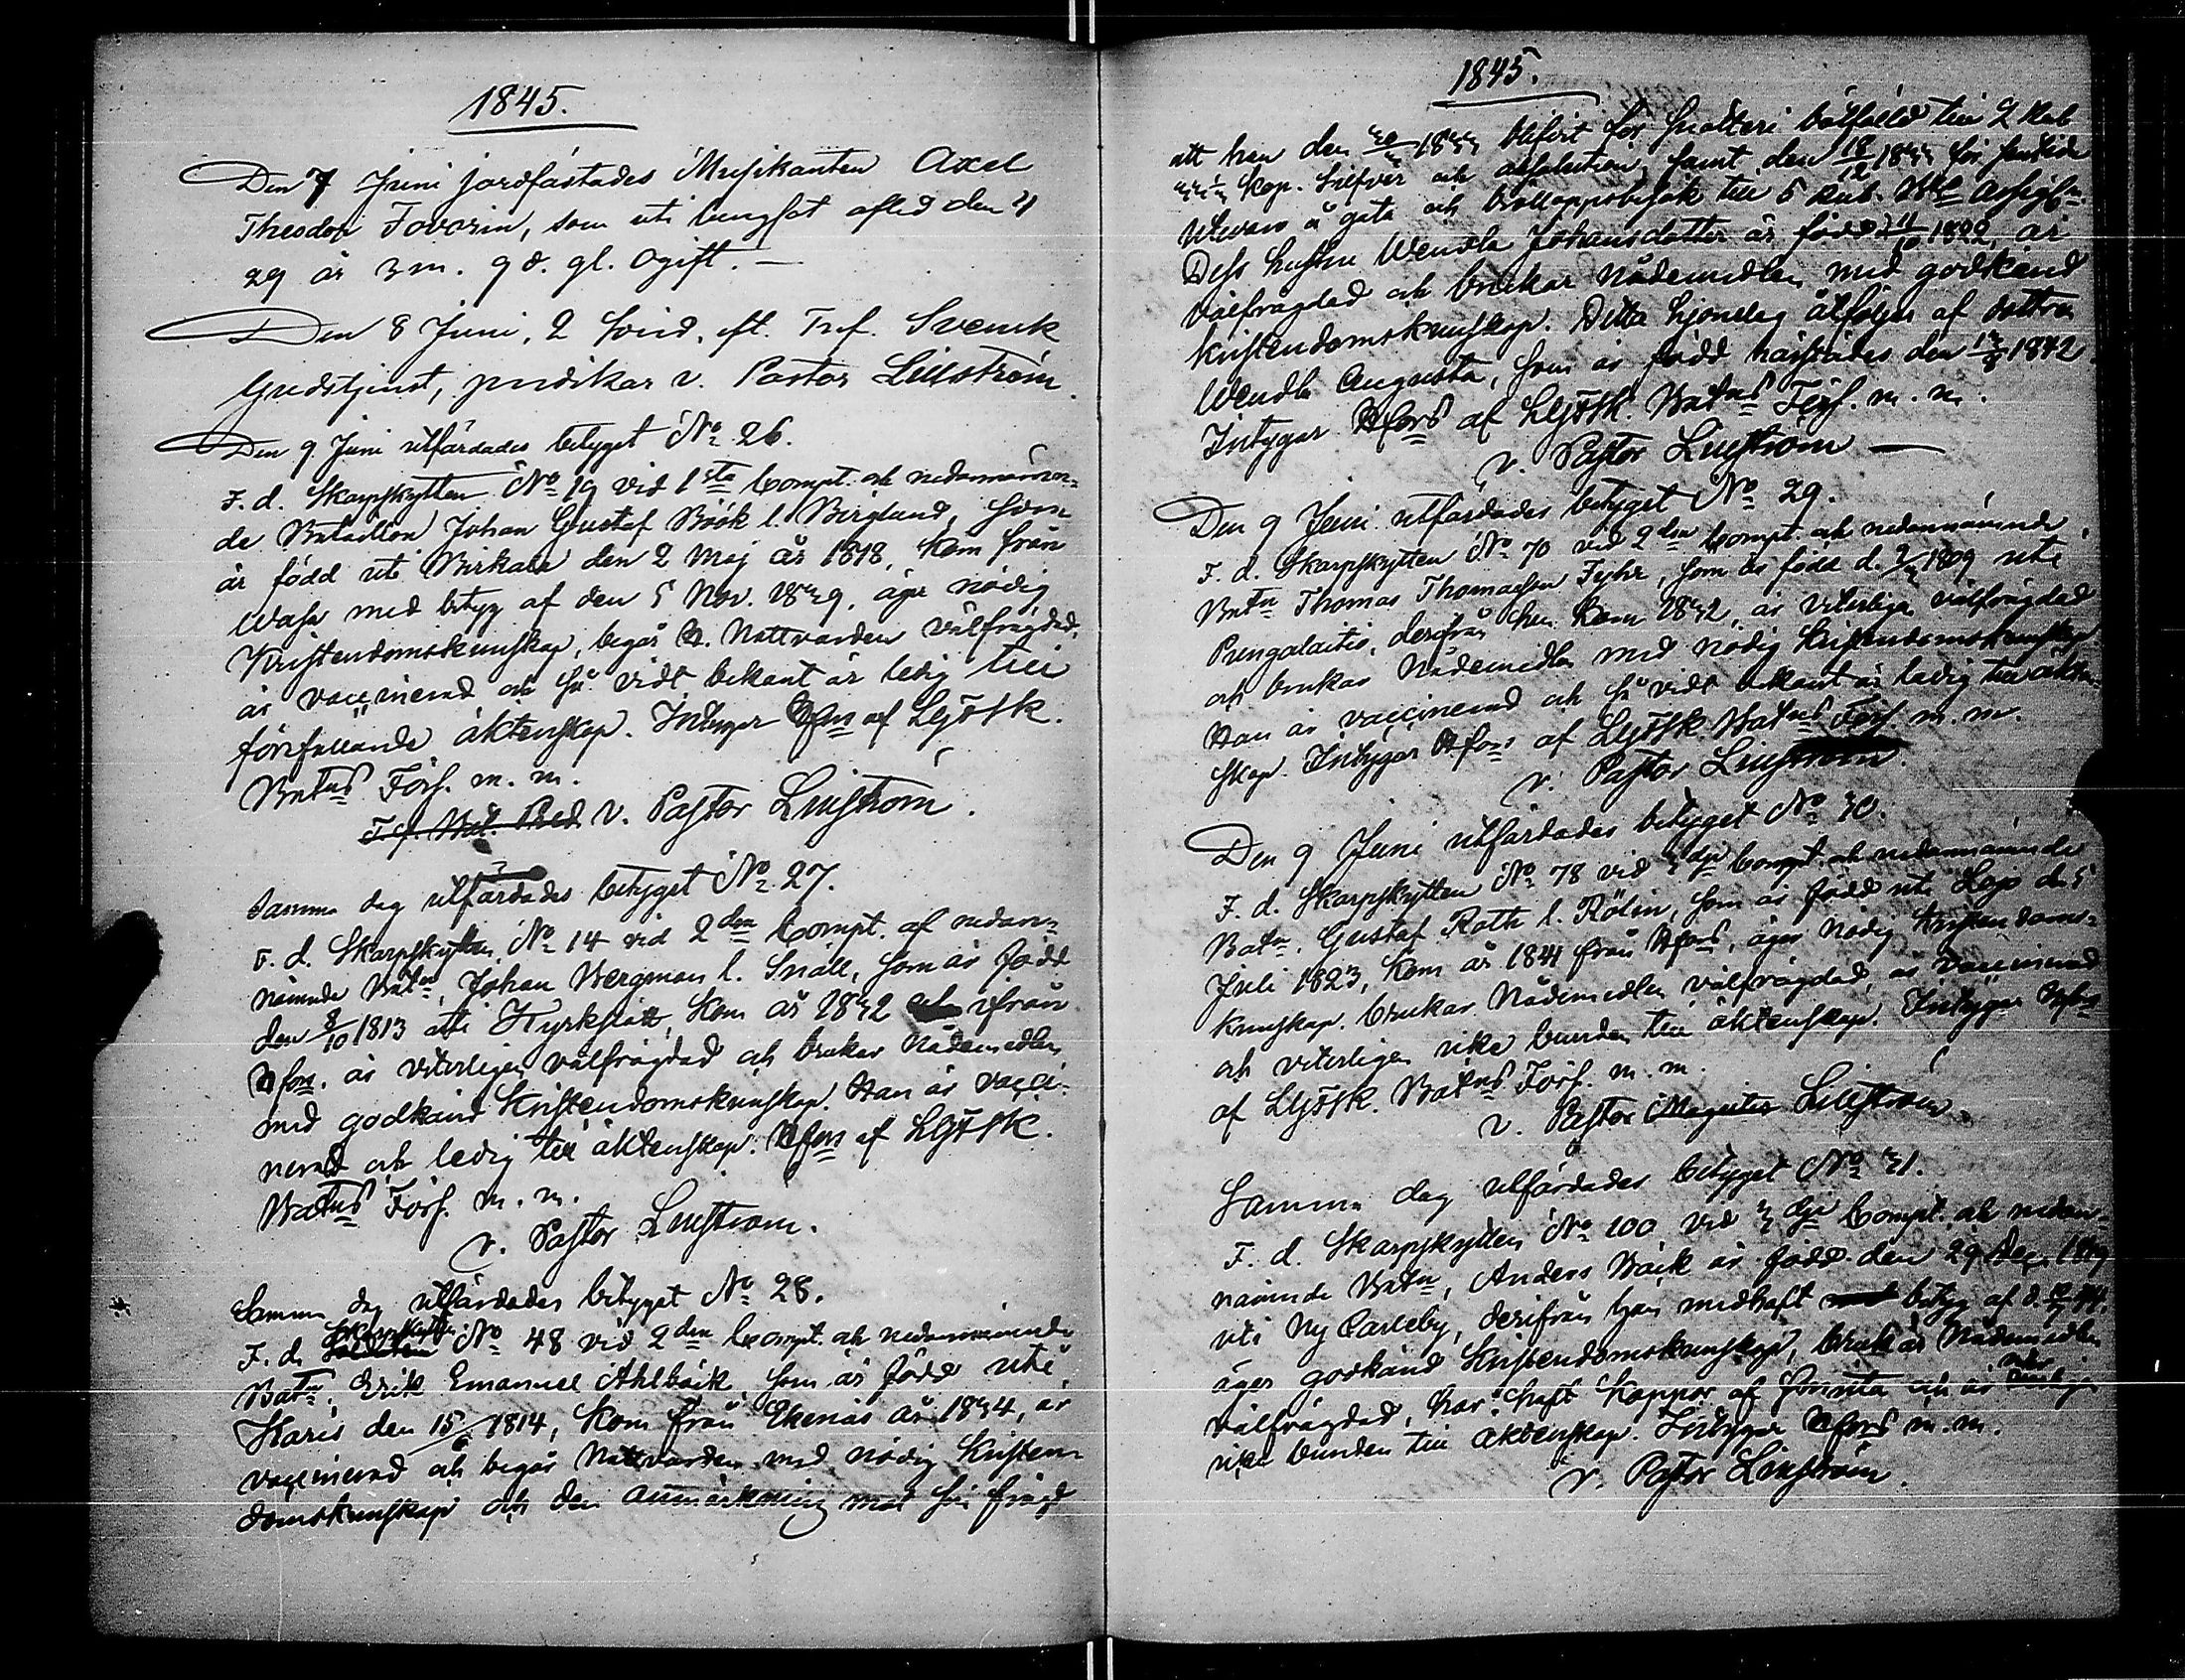 1845.
Den 7 Juni jordfästades Musikanten Axel
Theodor Favorin, som uti lungsot afled den 4
29 år 3 m. 9 d. gl. Ogift. —
Den 8 Juni, 2 Sönd. eft. Tref. Svensk
Gudstjenst, predikar v. Pastor Lillström.
Den 9 Juni utfärdades betyget No 26.
F. d. Skarpskytten No 19 vid 1sta Compt. och nedannämn-
de Bataillon Johan Gustaf Böök l. Berglund, som
är född uti Birkala den 2 Maj år 1818, kom från
Wasa med betyg af den 5 Nov. 1839, äger nödig
Kristendomskunskap, begår H. Nattvarden välfrägdad,
är vaccinerad och så vidt bekant är ledig till
förefallande äktenskap. Intygar Hfors af LGFSk.
Batns Förs. m. m.
T. f. Bat. Pred. v. Pastor Lillström.
Samma dag utfärdades betyget No 27.
F. d. Skarpskytten No 14 vid 2dra Compt. af nedan-
nämnde Batn, Johan Bergman l. Snäll, som är född
den 8/10 1813 uti Kyrkslätt, kom år 1832 ifrån
Hfors. är viterligen välfrägdad och brukar Nådemedlen
med godkänd Kristendomskunskap. Han är vacci-
nerad och ledig till äktenskap. Hfors af LGFSk.
Batns Förs. m. m.
v. Pastor Lillström.
Samma dag utfärdades betyget No 28.
F. d. Skarpskytten No 48 vid 2dra Compt. och nedannämnde
Batn, Erik Emanuel Ahlbäck, som är född uti
Karis den 15/6 1814, kom från Ekenäs år 1834, är
vaccinerad och begår Nattvarden med nödig Kristen-
domskunskap och den anmärkning mot sin frägd
1845.
att han den 30/3 1833 blifvit för snatteri bötfälld till 2 Rub
33 1/3 kop. Silfver och absolution, samt den 18/12 1833 för
å gata och bröllopsbesök till 5 Rub. Bko Assign.
Dess hustru Wendla Johansdotter är född 11/10 1822, är
välfrägdad och brukar Nådemedlen med godkänd
Kristendomskunskap. Detta hjonelag åtföljes af dottren
Wendla Augusta, som är född härstädes den 13/8 1842
Intygar Hfors af LGFSk. Batns Förs. m. m.
v. Pastor Lillström —
Den 9 Juni utfärdades betyget No 29.
F. d. Skarpskytten No 70 vid 2dra Compt. och nedannämnde
Batn Thomas Thomasson Fyhr, som är född d. 1809 uti
Pungalaitio, derifrån han kom 1832, är viterligen välfrägdad
och brukar Nådemedlen med nödig Kristendomskunskap
Han är vaccinerad och så vidt bekant är ledig till äkten-
skap. Intygar Hfors af LGFSk Batns Förs. m. m.
v. Pastor Lillström.
Den 9 Juni utfärdades betyget No 30.
F. d. Skarpskytten No 78 vid 3dje Compt. och nedannämnde
Batn. Gustaf Roth l. Rölin, som är född uti Lojo d. 5
Juli 1823, kom år 1841 från Hfors, äger nödig Kristendoms-
kunskap, brukar Nådemedlen välfrägdad, är vaccinerad
och viterligen icke bunden till äktenskap. Intygar Hfors
af LGFSk. Batns Förs. m. m.
v. Pastor Magister Lillström.
Samma dag utfärdades betyget No 31.
F. d. Skarpskytten No 100 vid 3dje Compt. och nedan-
nämnde Batn, Anders Bäck är född den 29 Dec. 1819
uti Ny Carleby, derifrån han medhaft betyg af d.
äger godkänd Kristendomskunskap, brukar Nådemedlen
välfrägdad, har haft koppor af första och är
icke bunden till äktenskap. Intygar Hfors m. m.
v. Pastor Lillström.